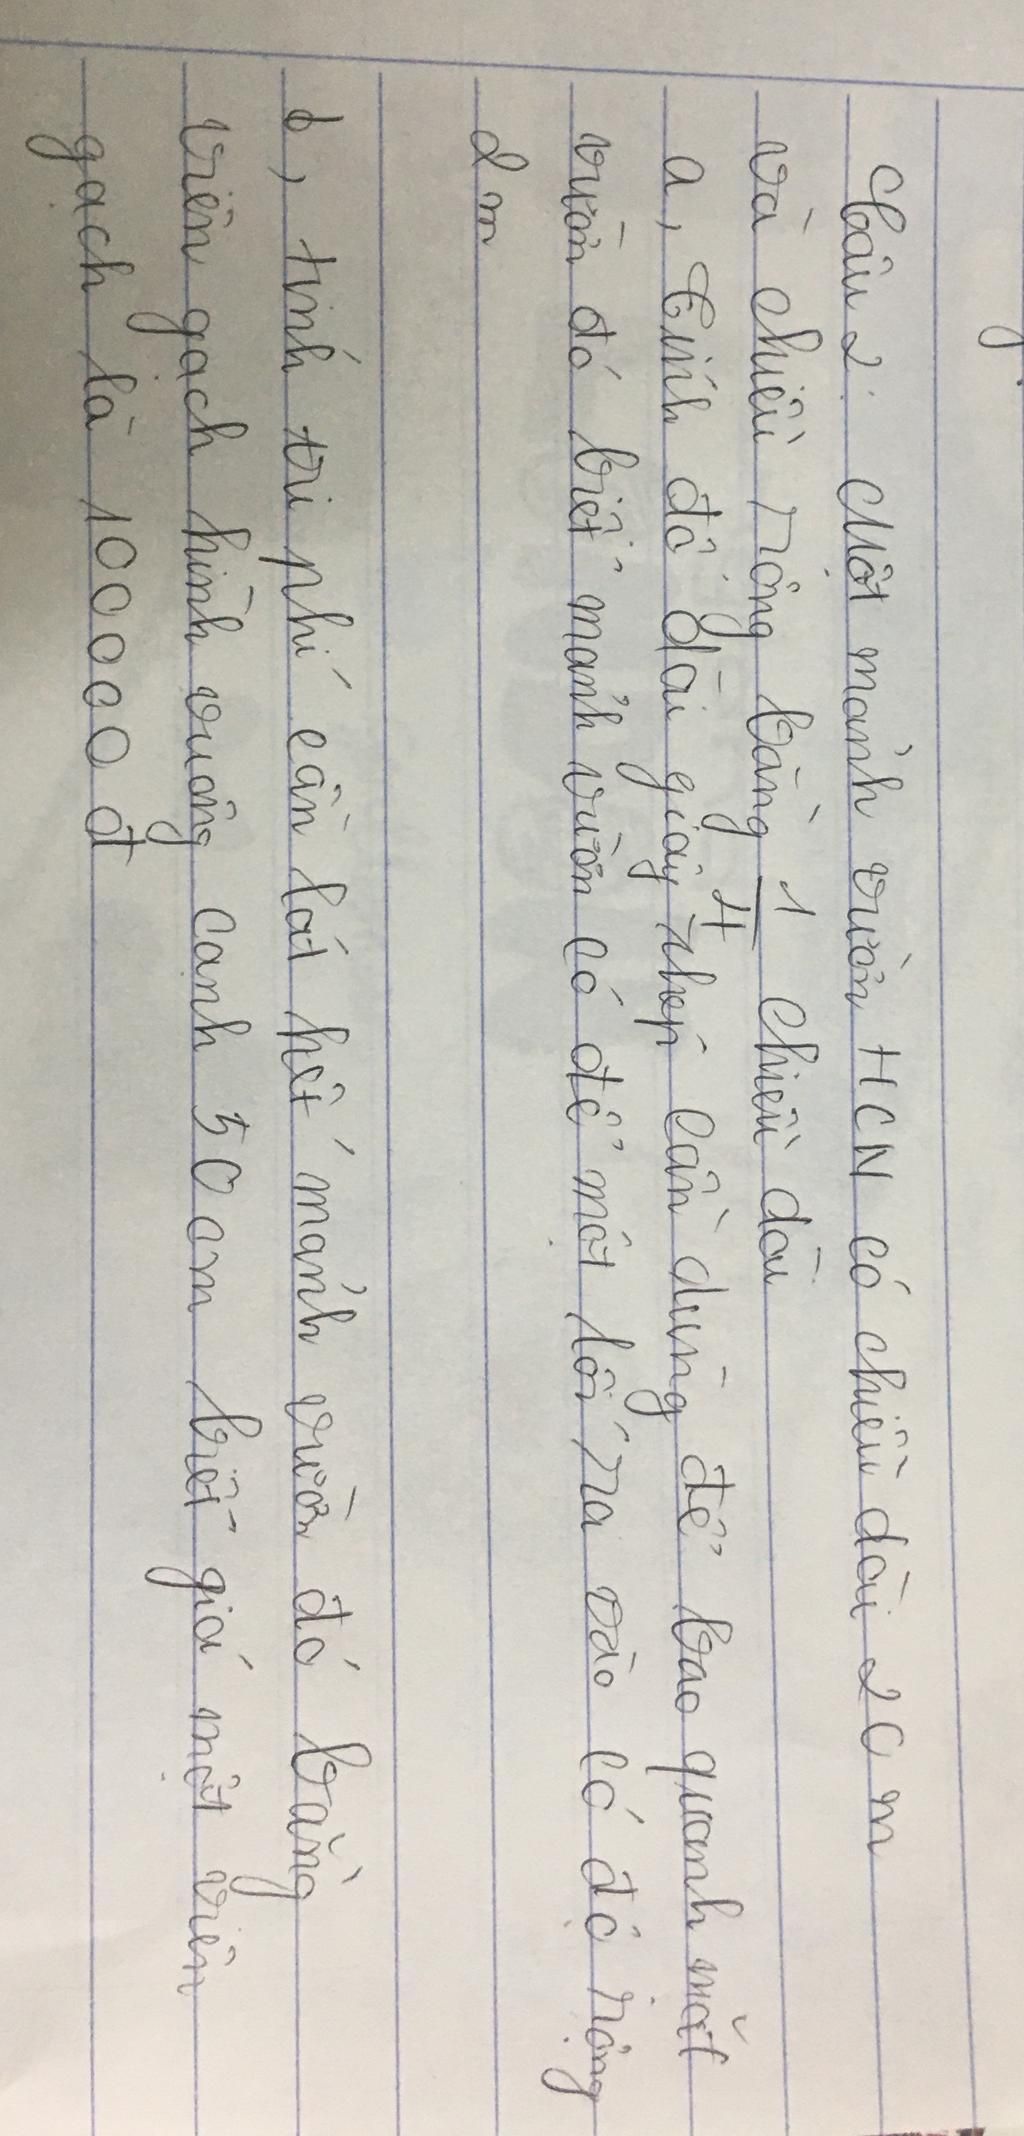 Câu 2: Một mảnh vườn HCN có chiều dài 20 m
và chiều rộng bằng 1/4 chiều dài
a, Tính độ dài giây thép cần dùng để bao quanh mảt
vườn đó biết mảnh vườn có để một lối ra vào có độ rộng
2 m
b, tính tri phí cần lát hết mảnh vườn đó bằng
viên gạch hình vuông cạnh 50 cm biết giá một viên
gạch là 10000 đ